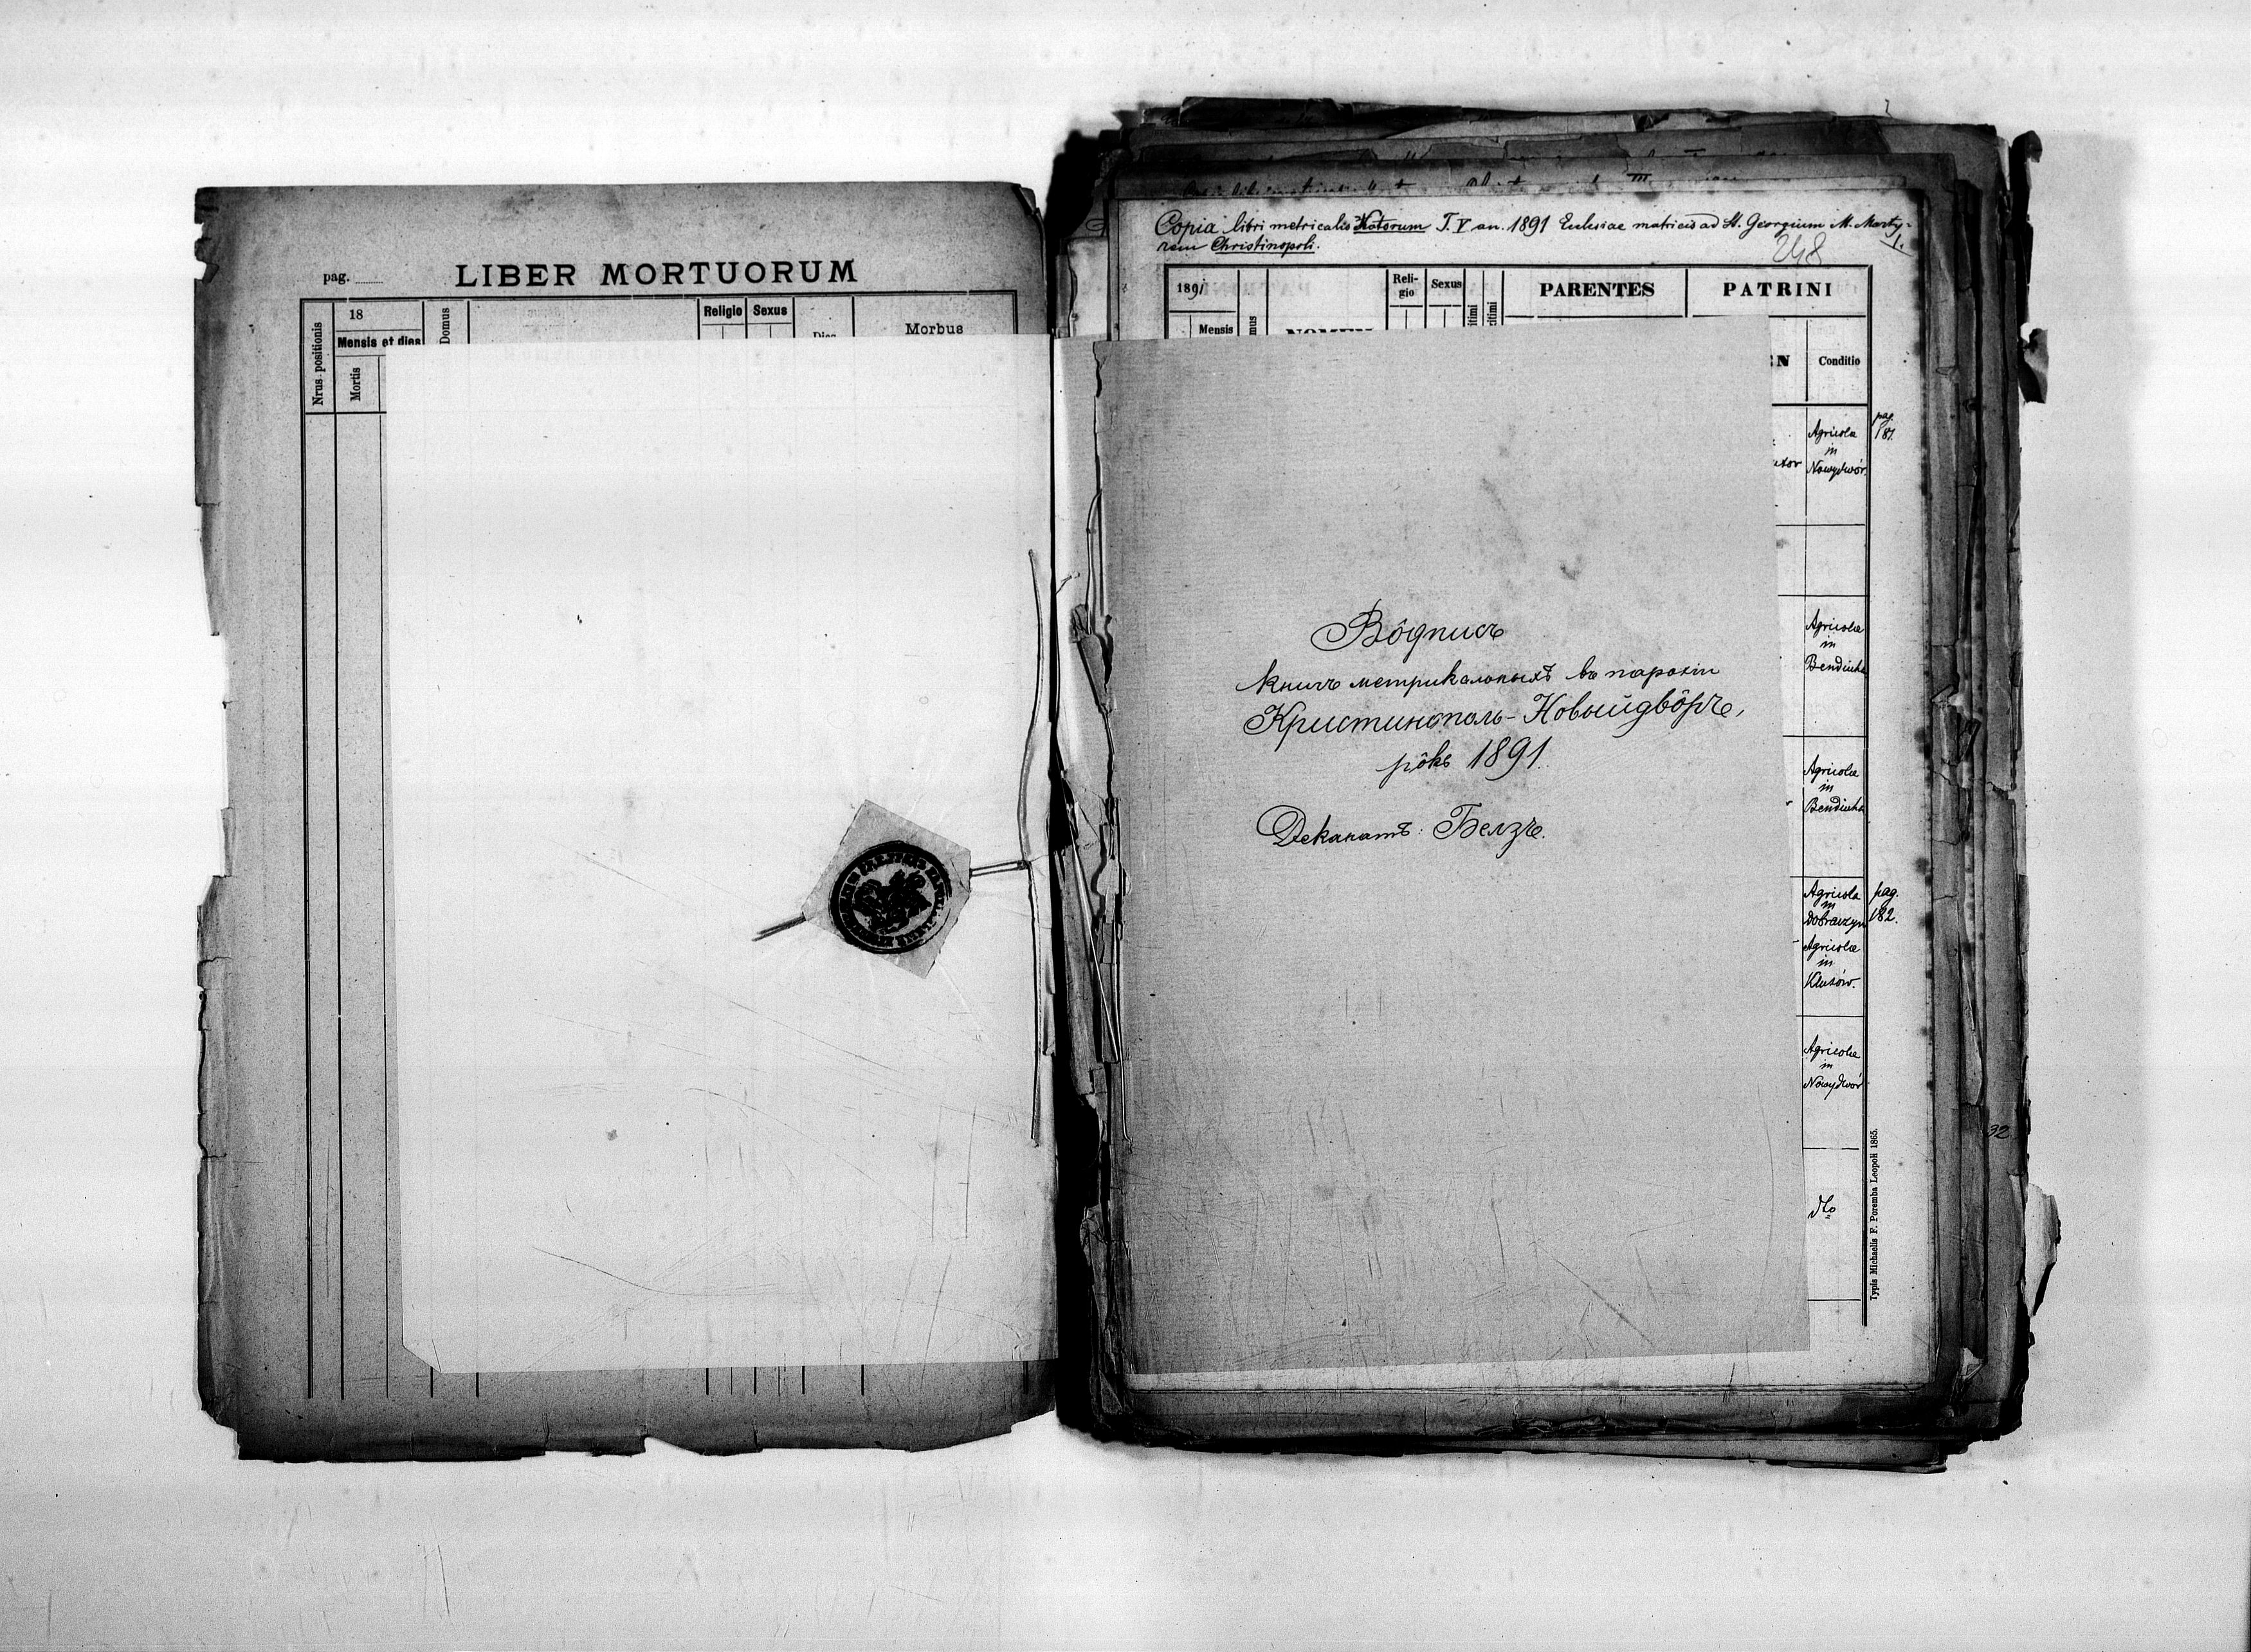 pag.
LIBER MORTUORUM
Nrus positionis
18
Mensis et dies
Mortis
Domus
Religio
Sexus
Dies
Morbus
Copia libri metricalis Natorum T. V an. 1891 Ecclesiae matricis ad St. Georgium M. Marty-
rem Christinopoli.
1.
248
1891
Mensis
NOMEN
Reli-
gio
Sexus
PARENTES
PATRINI
EN
Conditio
Agricola
in
Nowydwór.
pag.
181.
Agricola
in
Bendiucha
Agricola
in
Bendiucha
Agricola
in
Dobraczyn
pag.
182.
Agricola
in
Klusów.
Agricola
in
Nowydwór
dto
Typis Michaelis F. Poremba Leopoli 1865.
32
Вôдписъ
книгъ метрикальныхъ въ парохіи
Кристинополь-Новыйдвôръ,
рôкъ 1891.
Деканатъ: Белзъ.